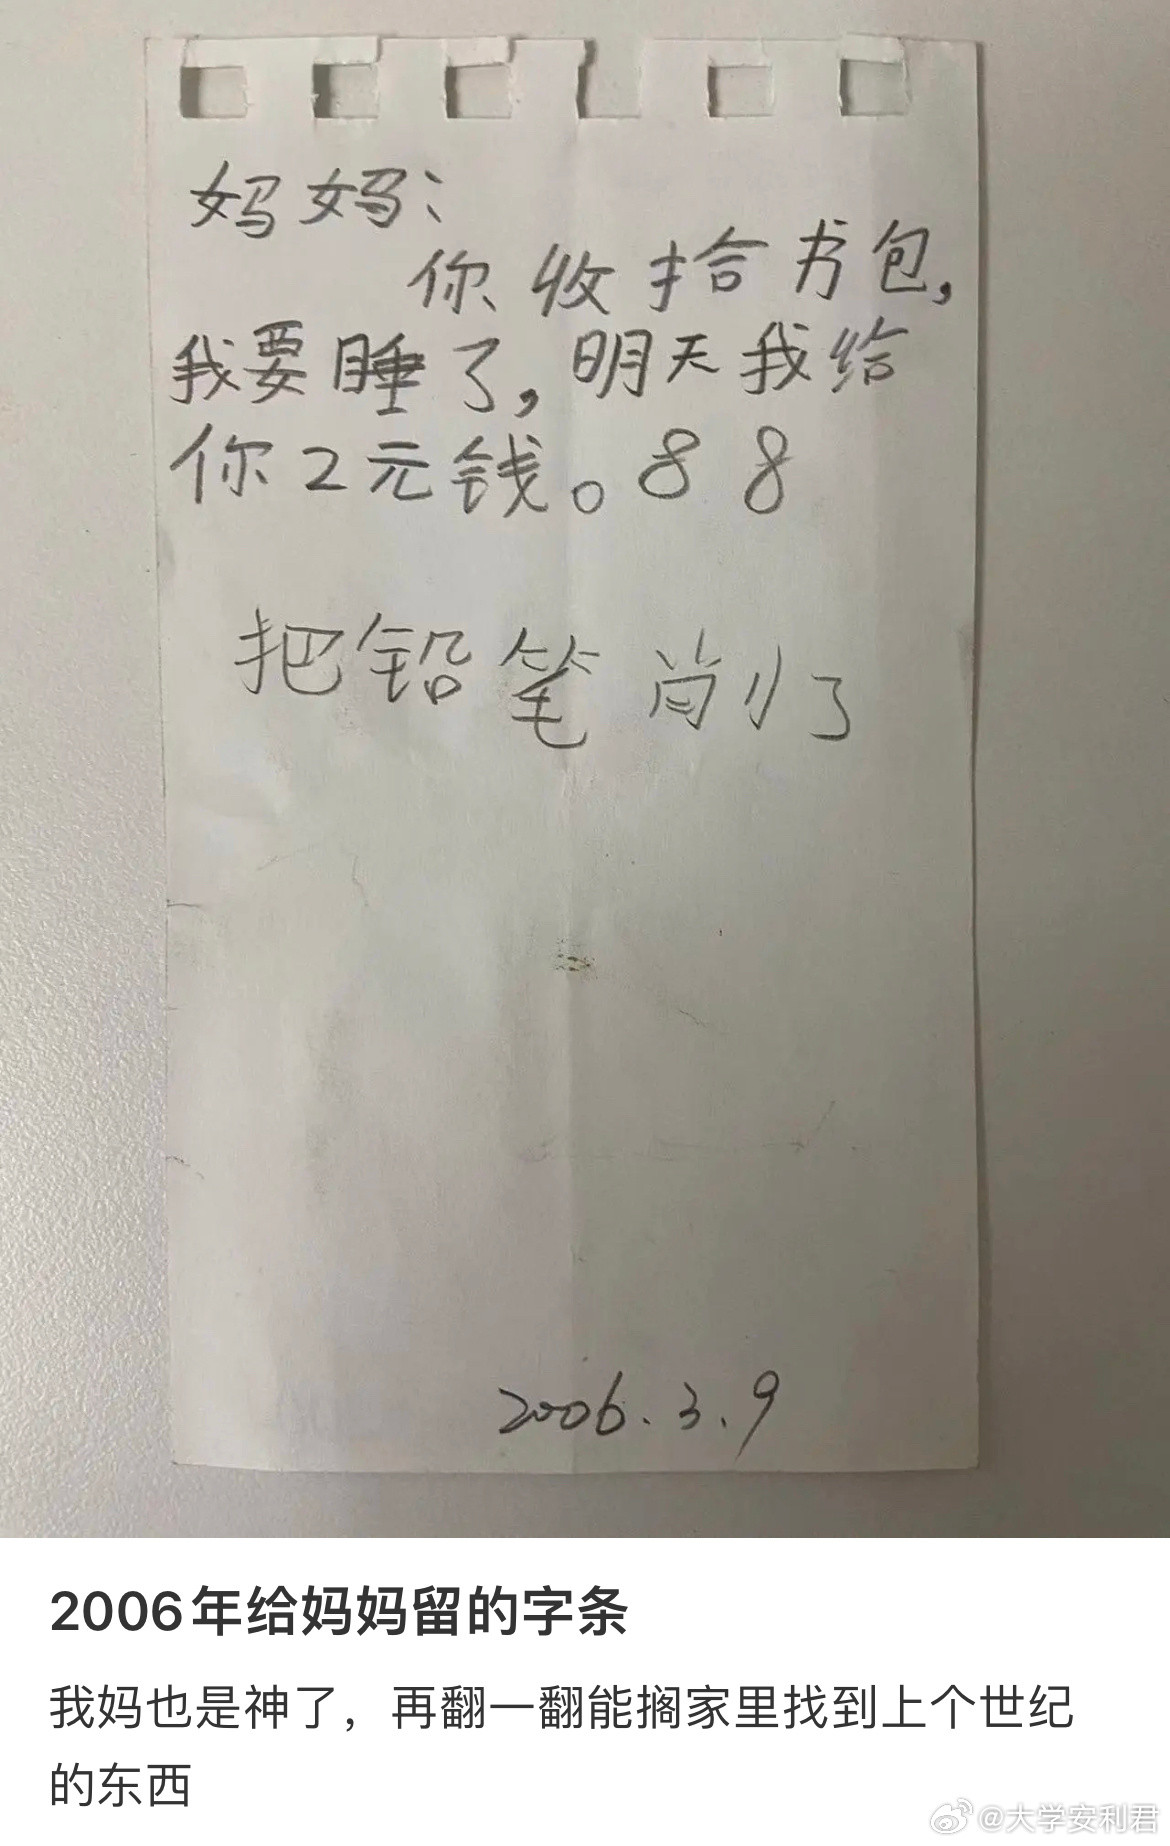 妈妈：
你收拾书包，
我要睡了，明天我给
你2元钱。88
把铅笔削了
2006.3.9
2006年给妈妈留的字条
我妈也是神了，再翻一翻能搁家里找到上个世纪
的东西
@大学安利君